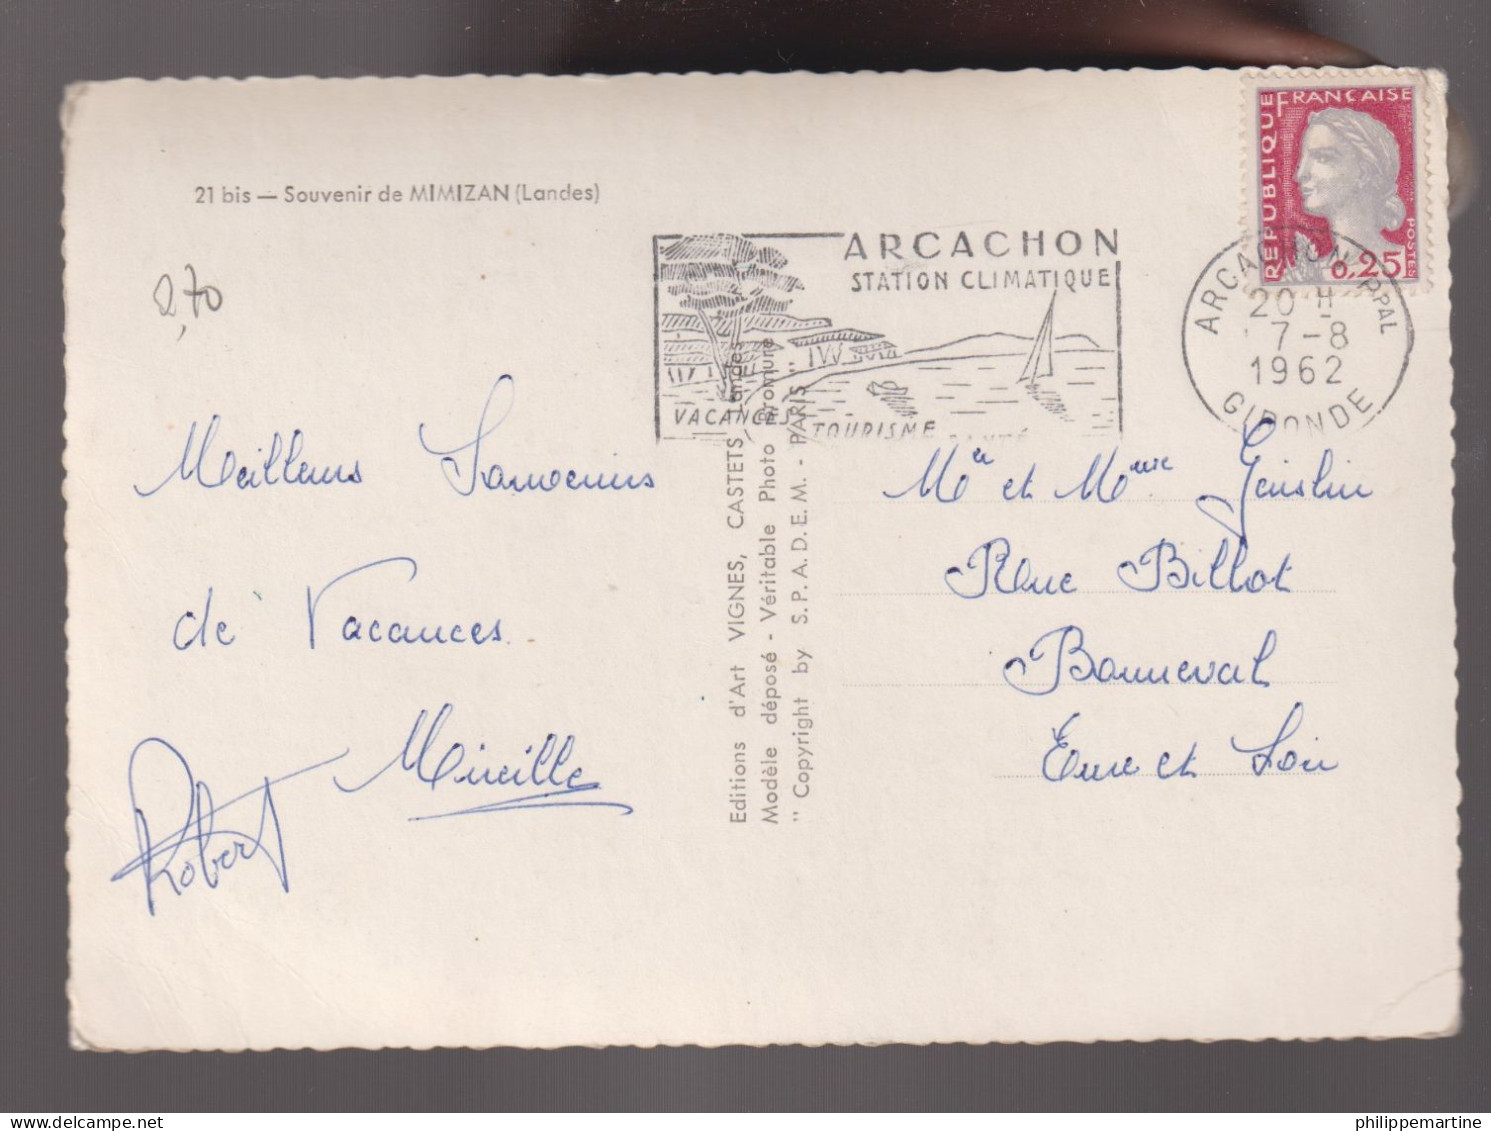 21 bis — Souvenir de MIMIZAN (Landes)
2,70
ARCACHON
STATION CLIMATIQUE
VACANCES
TOURISME
SANTÉ
REPUBLIQUE
FRANCAISE
POSTES
0,25
ARCACHON PPAL
20 H
7-8
1962
GIRONDE
Meilleurs Souvenirs
de Vacances
Mireille
Robert
Editions d'Art VIGNES, CASTETS Landes
Modèle déposé - Véritable Photo Bromure
" Copyright by S.P.A.D.E.M. - PARIS "
Mr et Mme
Rue Billot
Bonneval
Eure et Loir
philippemartine